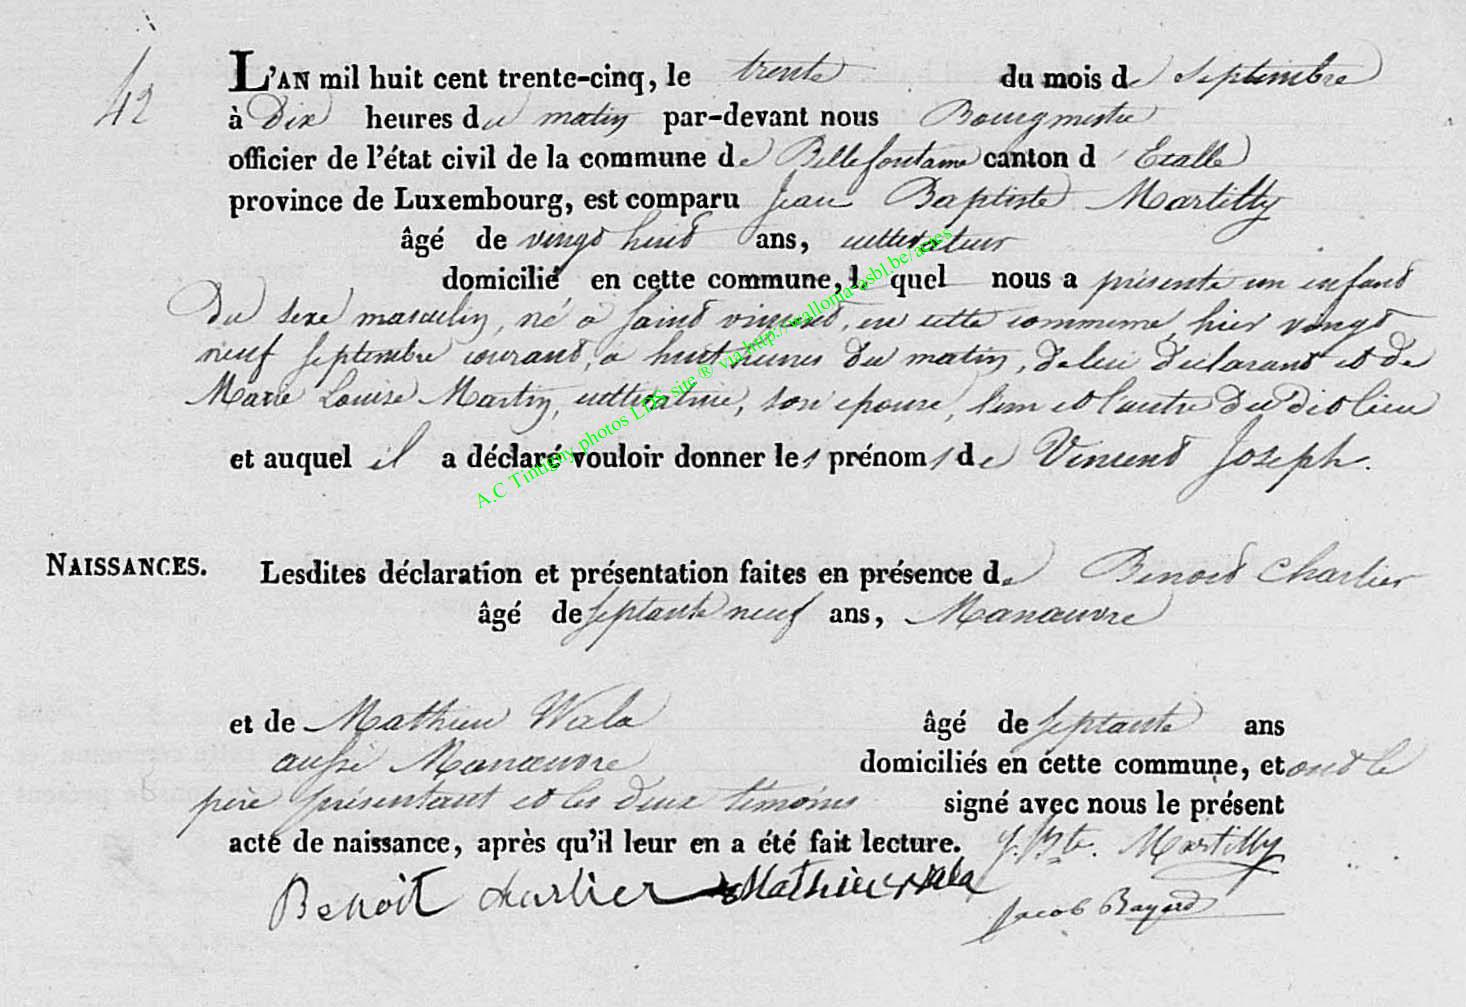 42
L'AN mil huit cent trente-cinq, le trente du mois de septembre
à Dix heures du matin par-devant nous Bourgmestre
officier de l'état civil de la commune de Bellefontaine canton d'Etalle
province de Luxembourg, est comparu Jean Baptiste Martilly
âgé de vingt huit ans, cultivateur
domicilié en cette commune, lequel nous a présenté un enfant
du sexe masculin, né à saint vincent, en cette commune, hier vingt
neuf septembre courant, à huit heures du matin, de lui déclarant et de
Marie Louise Martin, cultivatrice, son épouse, l'un et l'autre du dit lieu
et auquel il a déclaré vouloir donner les prénoms de Vincent Joseph.
NAISSANCES.
Lesdites déclaration et présentation faites en présence de Benoit Charlier
âgé de septante neuf ans, Manœuvre
et de Mathieu Wala âgé de septante ans
aussi Manœuvre domiciliés en cette commune, et ont le
père présentant et les deux témoins signé avec nous le présent
acte de naissance, après qu'il leur en a été fait lecture. J. Bte. Martilly
Benoit charlier Mathieu Wala
Jacob Bayard
A.C Tintigny photos LDS site ® via http://wallonia-asbl.be/actess